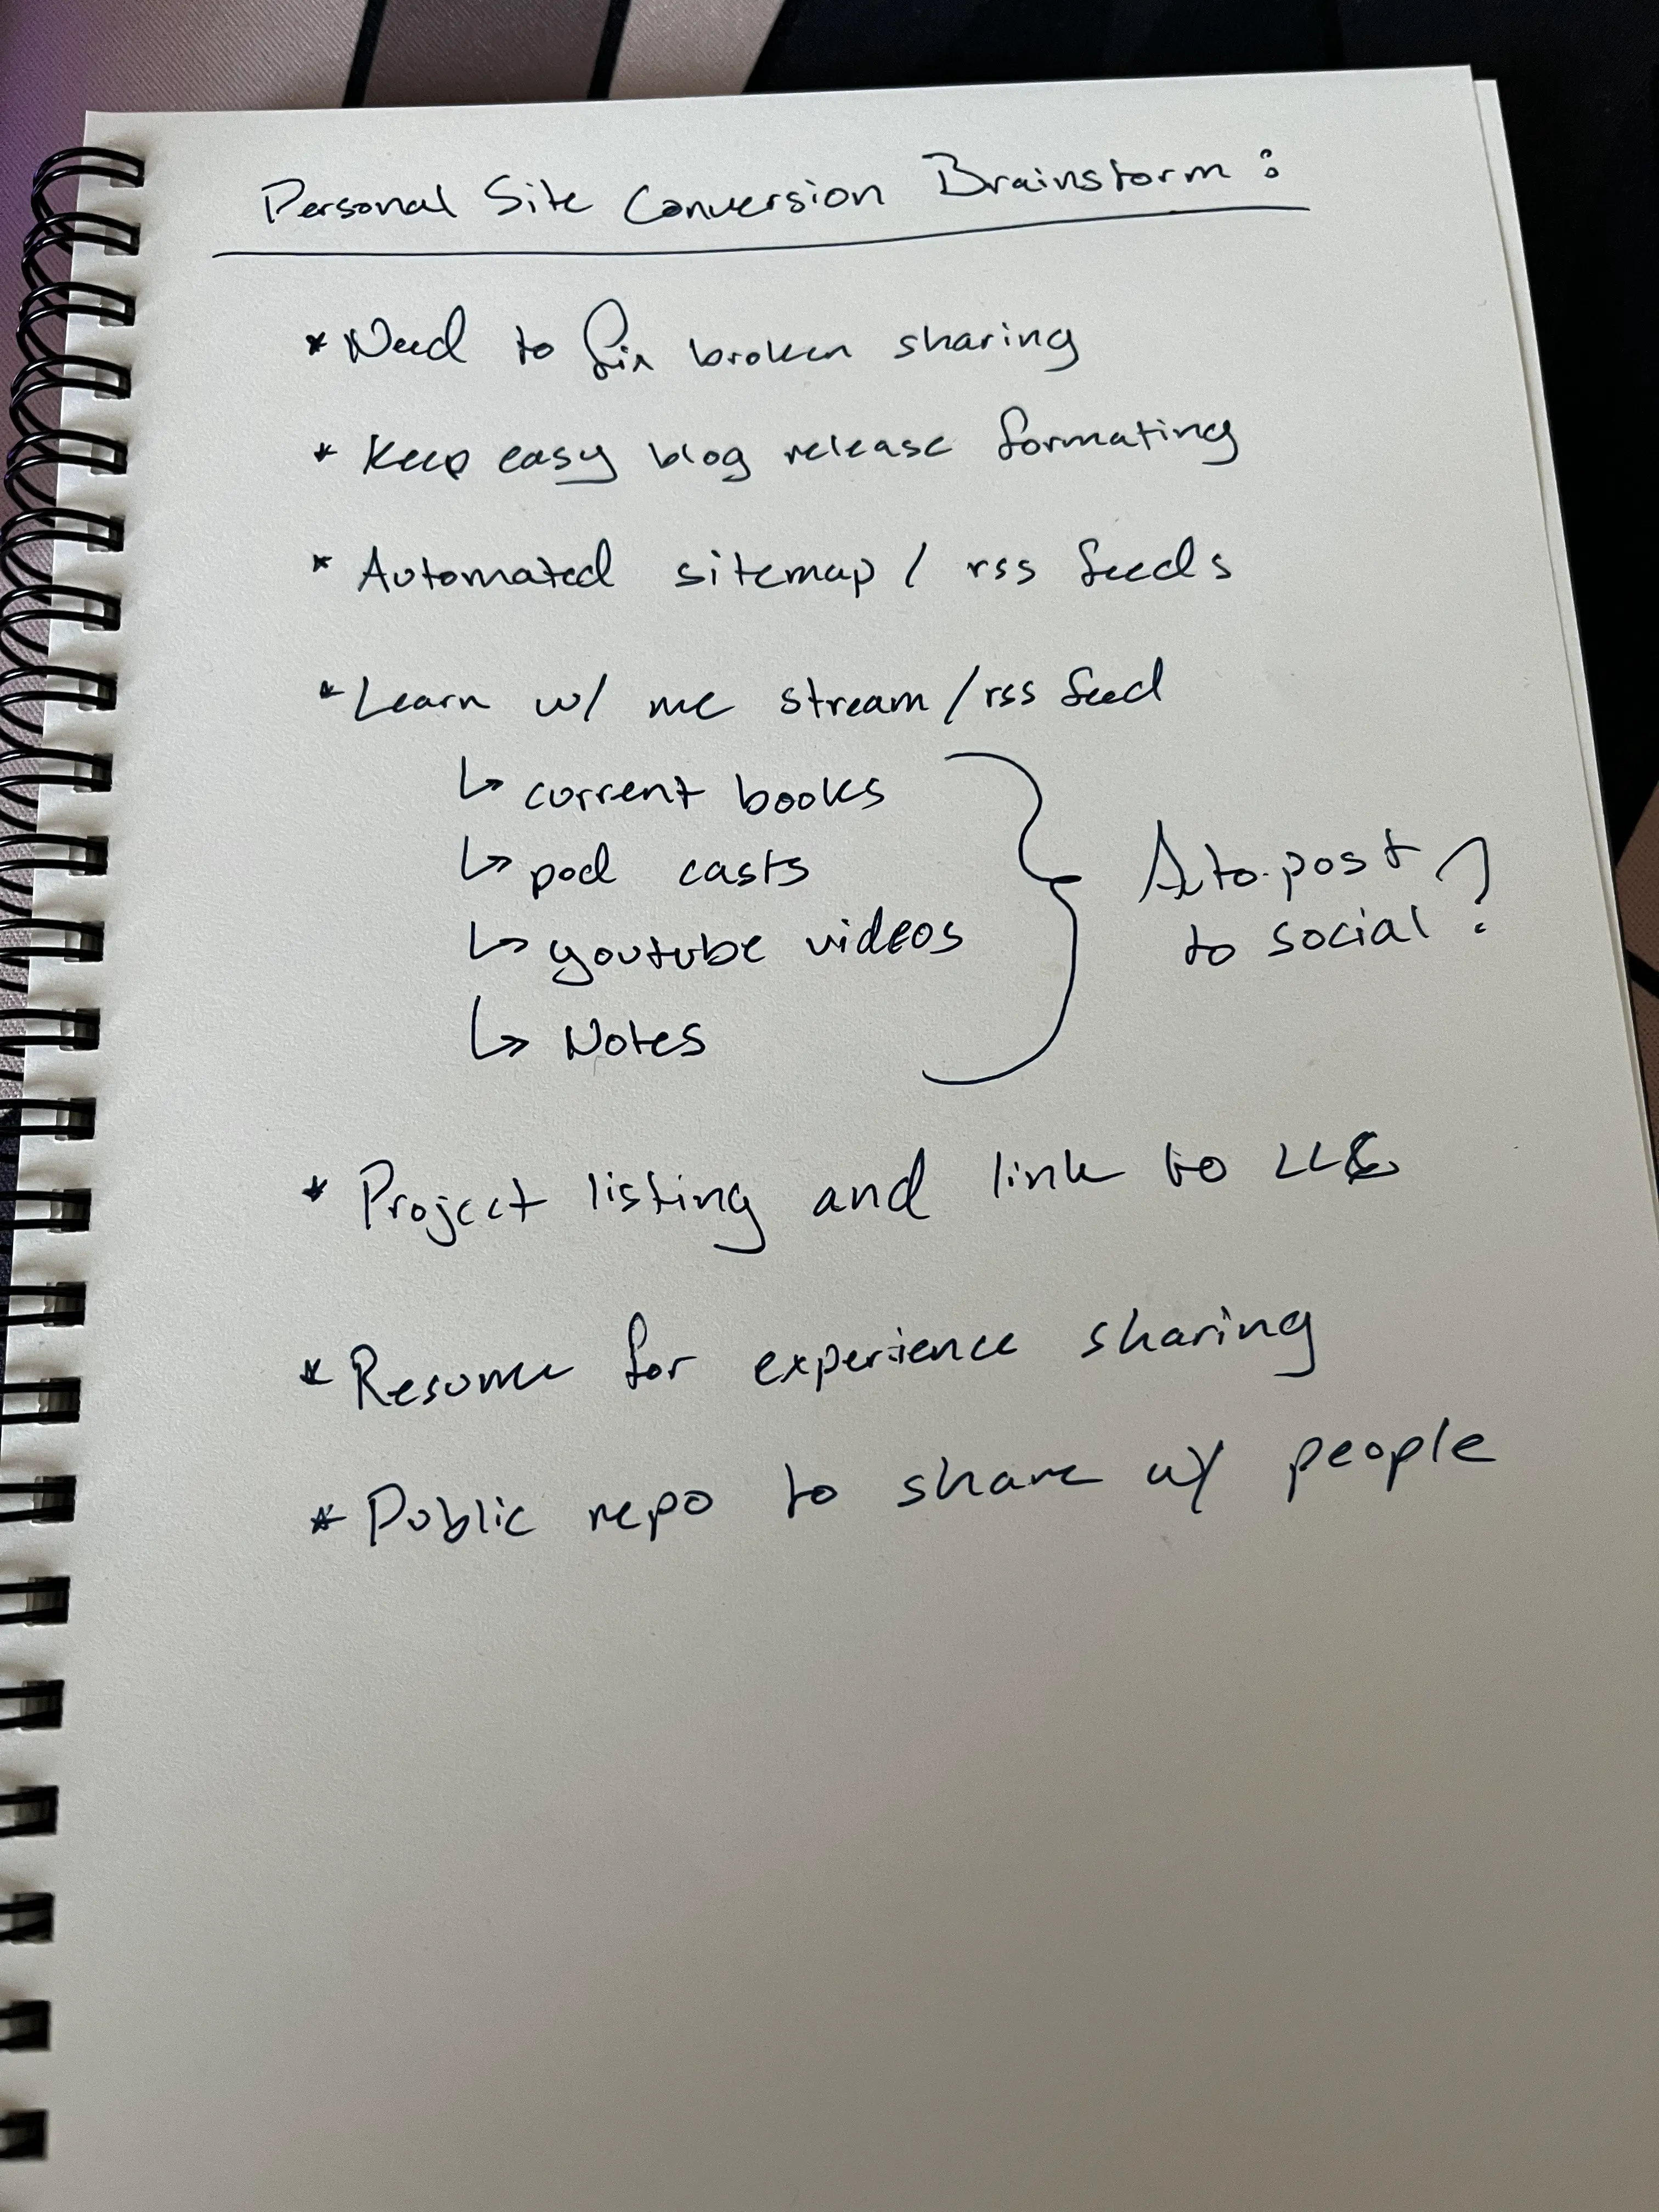 Personal Site Conversion Brainstorm:
* Need to fix broken sharing
* Keep easy blog release formating
* Automated sitemap / rss feeds
* Learn w/ me stream / rss feed
↳ current books
↳ pod casts
↳ youtube videos
↳ Notes
Auto-post
to social?
* Project listing and link to LLC
* Resume for experience sharing
* Public repo to share w/ people